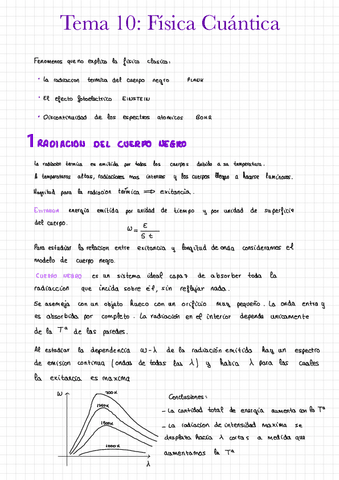 Tema 10: Física Cuántica
Fenomenos que no explica la fisica clasica:
· La radiacion termica del cuerpo negro PLANK
· El efecto fotoelectrico EINSTEIN
· Discontinuidad de los espectros atomicos BOHR
1 RADIACION DEL CUERPO NEGRO
La radiacion termica es emitida por todos los cuerpos debido a su temperatura.
A temperaturas altas, radiaciones mas intensas y los cuerpos llegan a hacerse luminosos.
Magnitud para la radiacion termica ⟹ exitancia.
EXITANCIA energia emitida por unidad de tiempo y por unidad de superficie
del cuerpo.
W = E / S·t
Para estudiar la relacion entre exitancia y longitud de onda consideramos el
modelo de cuerpo negro.
CUERPO NEGRO es un sistema ideal capaz de absorber toda la
radiaccion que incida sobre él, sin reflejar nada.
Se asemeja con un objeto hueco con un orificio muy pequeño. La onda entra y
es absorbida por completo. La radiacion en el interior depende unicamente
de la Tª de las paredes.
Al estudiar la dependencia W-λ de la radiación emitida hay un espectro
de emision continua (ondas de todas las λ) y habia λ para las cuales
la exitancia es maxima
Conclusiones:
- La cantidad total de energia aumenta con la Tª
- La radiacion de intensidad maxima se
desplaza hacia λ cortas a medida que
aumentamos la Tª
W
λ